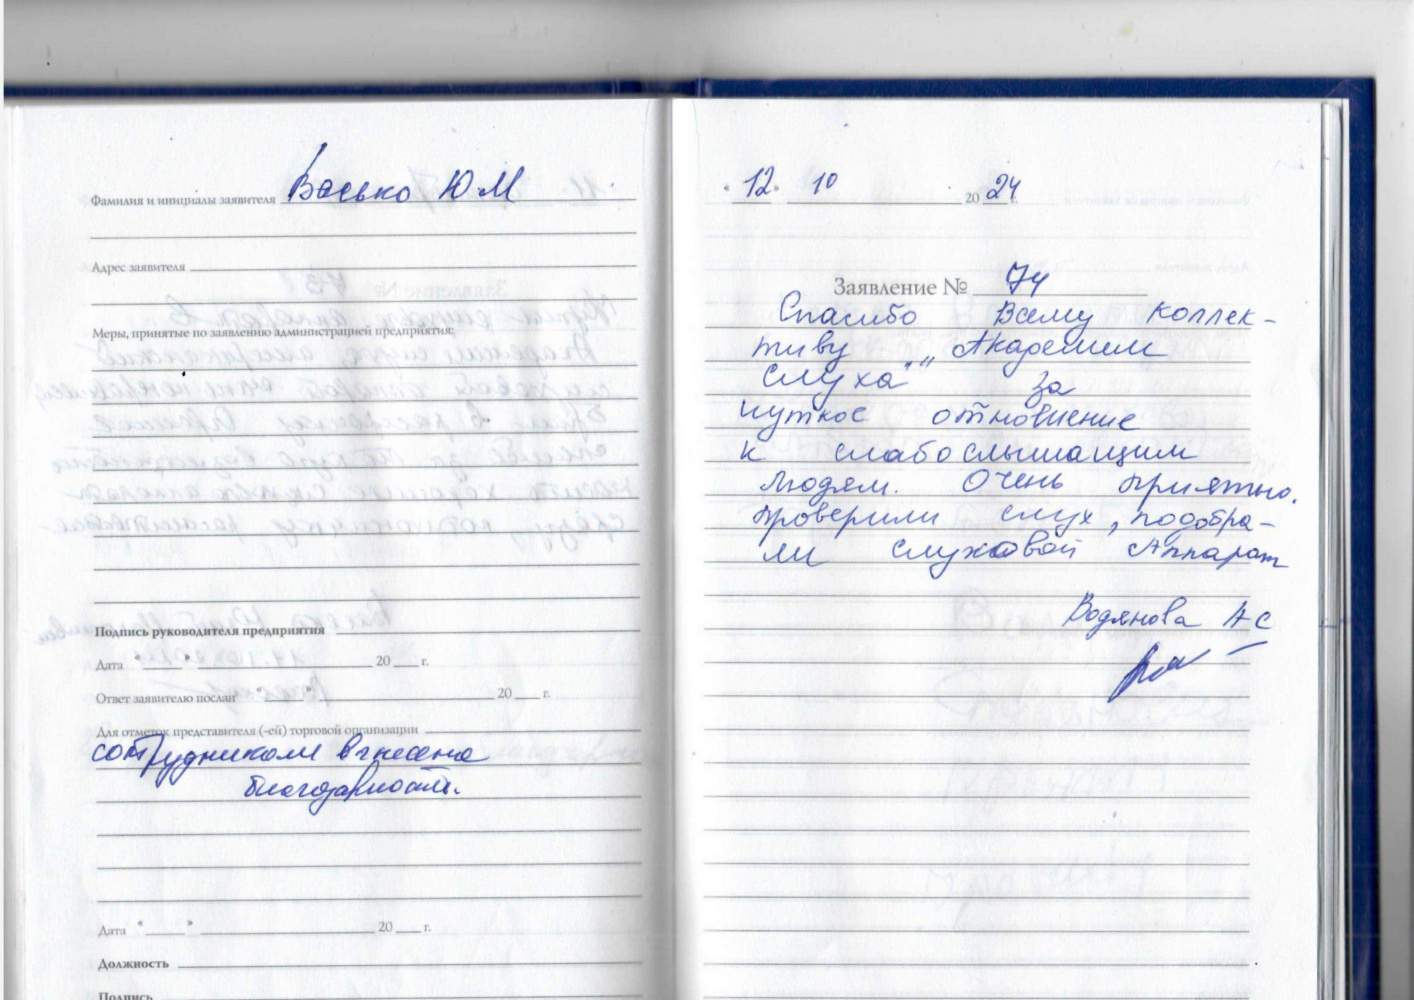 Фамилия и инициалы заявителя Васько Ю М
Адрес заявителя
Меры, принятые по заявлению администрацией предприятия:
Подпись руководителя предприятия
Дата " " 20 г.
Ответ заявителю послан 20 г.
Для отметок представителя (-ей) торговой организации
сотрудникам внесена
благодарность.
Дата " " 20 г.
Должность
Подпись
" 12 " 10 2024 г.
Заявление № 74
Спасибо Всему коллек-
тиву „Академии
слуха" за
чуткое отновшение
к слабослышащим
людям. Очень приятно.
проверили слух, подобра-
ли слуховой Аппарат
Водянова А С